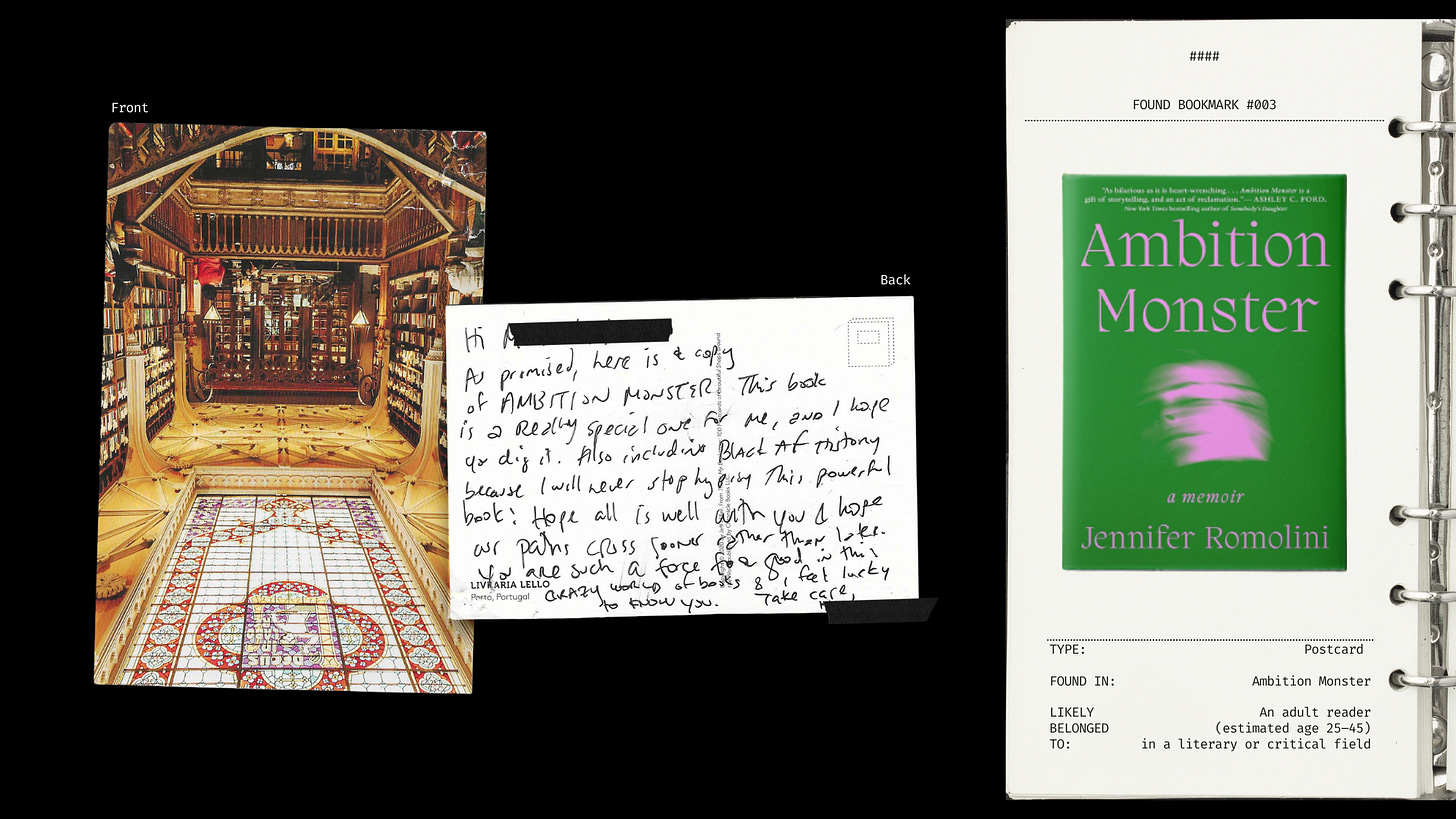 Front
Back
Hi
As promised, here is a copy
of AMBITION MONSTER. This book
is a Really special one for me, and I hope
you dig it. Also including Black AF History
because I will never stop hyping This powerful
book! Hope all is well with you & hope
our paths cross sooner rather than later.
You are such a force for good in this
CRAZY world of books & I feel lucky
to know you. Take care,
LIVRARIA LELLO
Porto, Portugal
####
FOUND BOOKMARK #003
"As hilarious as it is heart-wrenching . . . Ambition Monster is a
gift of storytelling, and an act of reclamation."— ASHLEY C. FORD,
New York Times bestselling author of Somebody's Daughter
Ambition
Monster
a memoir
Jennifer Romolini
TYPE: Postcard
FOUND IN: Ambition Monster
LIKELY An adult reader
BELONGED (estimated age 25–45)
TO: in a literary or critical field